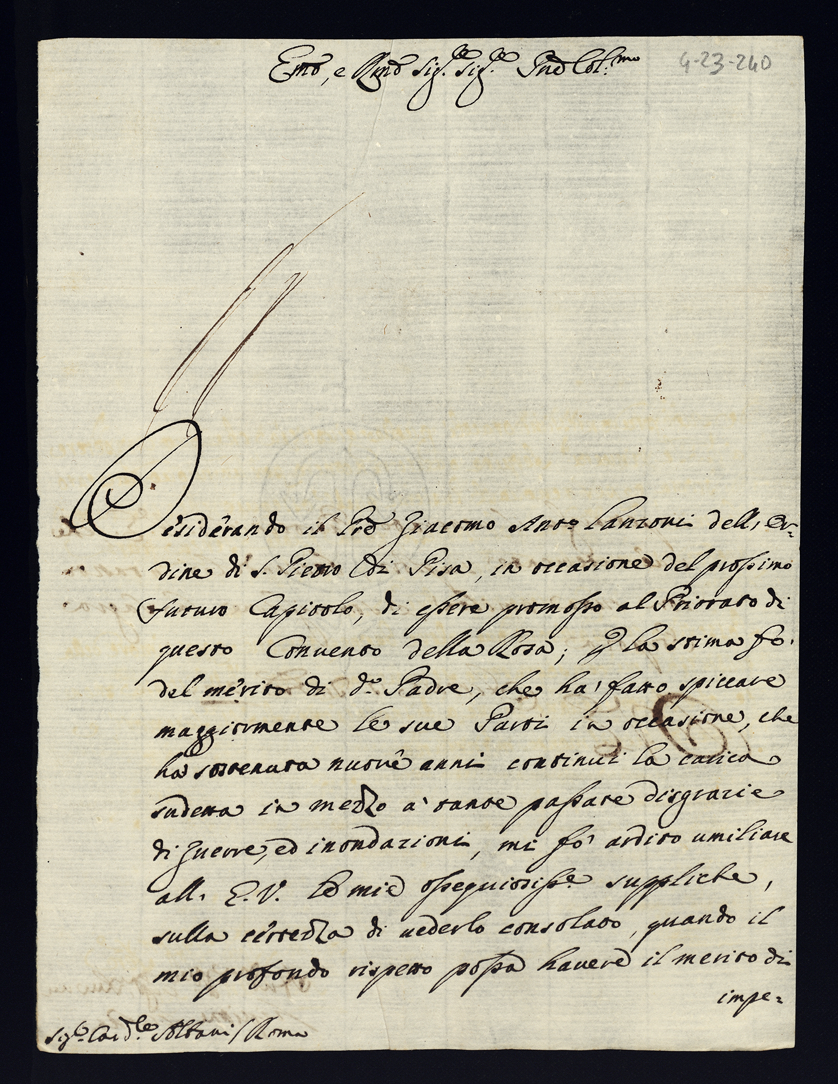 Emo, e Rmo Sig.re Sig.re Pne Col:mo
4-23-240
Desiderando il Pre Giacomo Anto Lanzoni dell' Or-
dine di S. Pietro di Pisa, in occasione del prossimo
futuro Capitolo, di essere promosso al Priorato di
questo Convento della Rosa; la stima fo
del merito di do Padre, che ha' fatto spiccare
maggiormente le sue Parti in occasione, che
ha sostenuta nuove anni continui la carica
sudetta in mezzo a' tante passate disgrazie
di guerre, ed inondazioni, mi fo' ardito umiliare
all' E. V. le mie ossequiosisse suppliche,
sulla certezza di vederlo consolato, quando il
mio profondo rispetto possa havere il merito di
impe=
Sig.r Card.le Albani / Roma